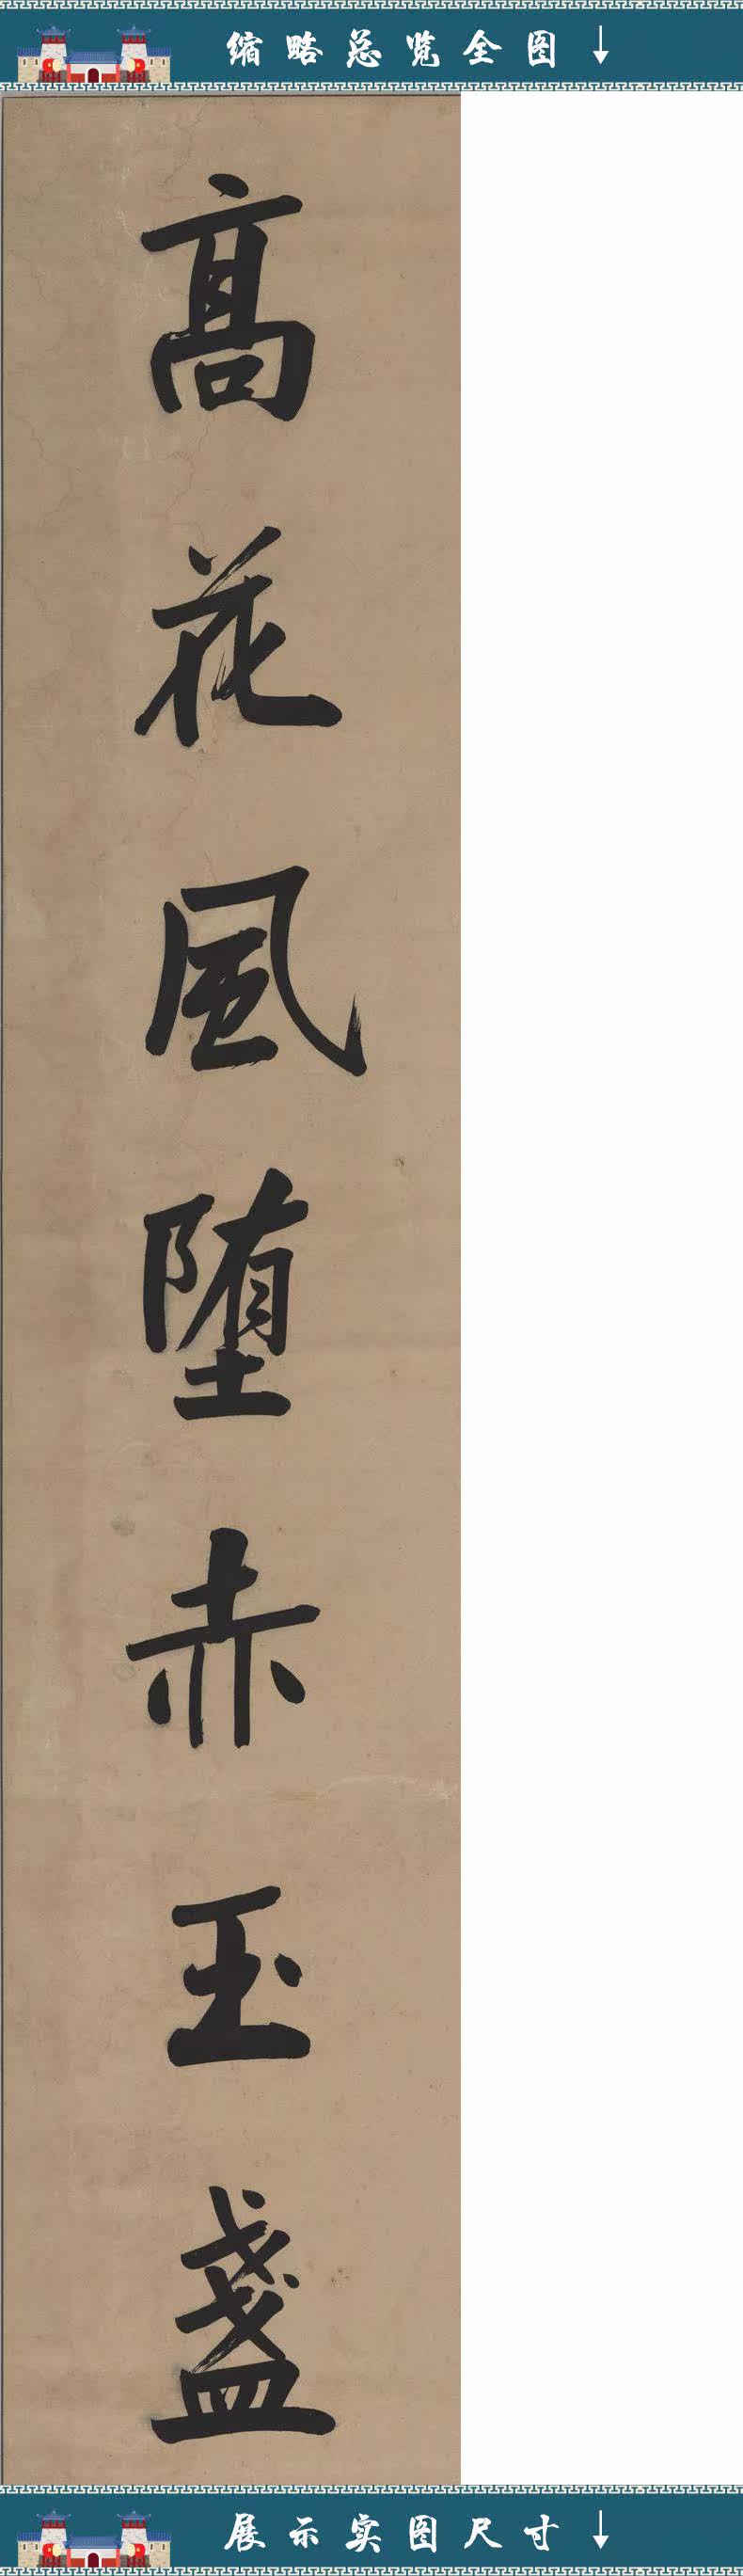 缩略总览全图↓
高花風堕赤玉盏
展示实图尺寸↓